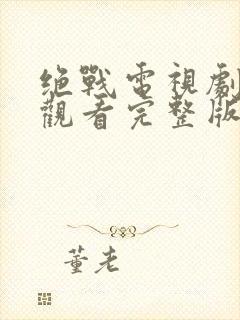 绝戰電視劇
觀看完整版
董老